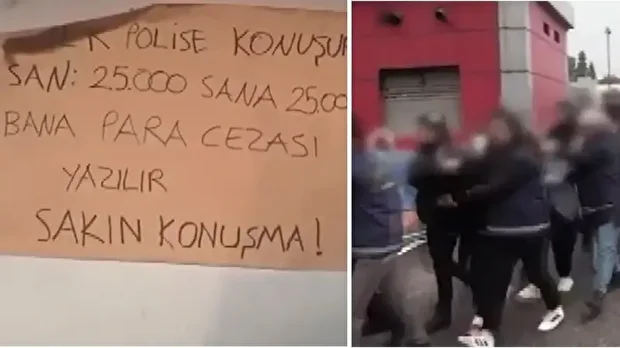 POLİSE KONUŞUR
SAN: 25.000 SANA 25.00
BANA PARA CEZASI
YAZILIR
SAKIN KONUŞMA!